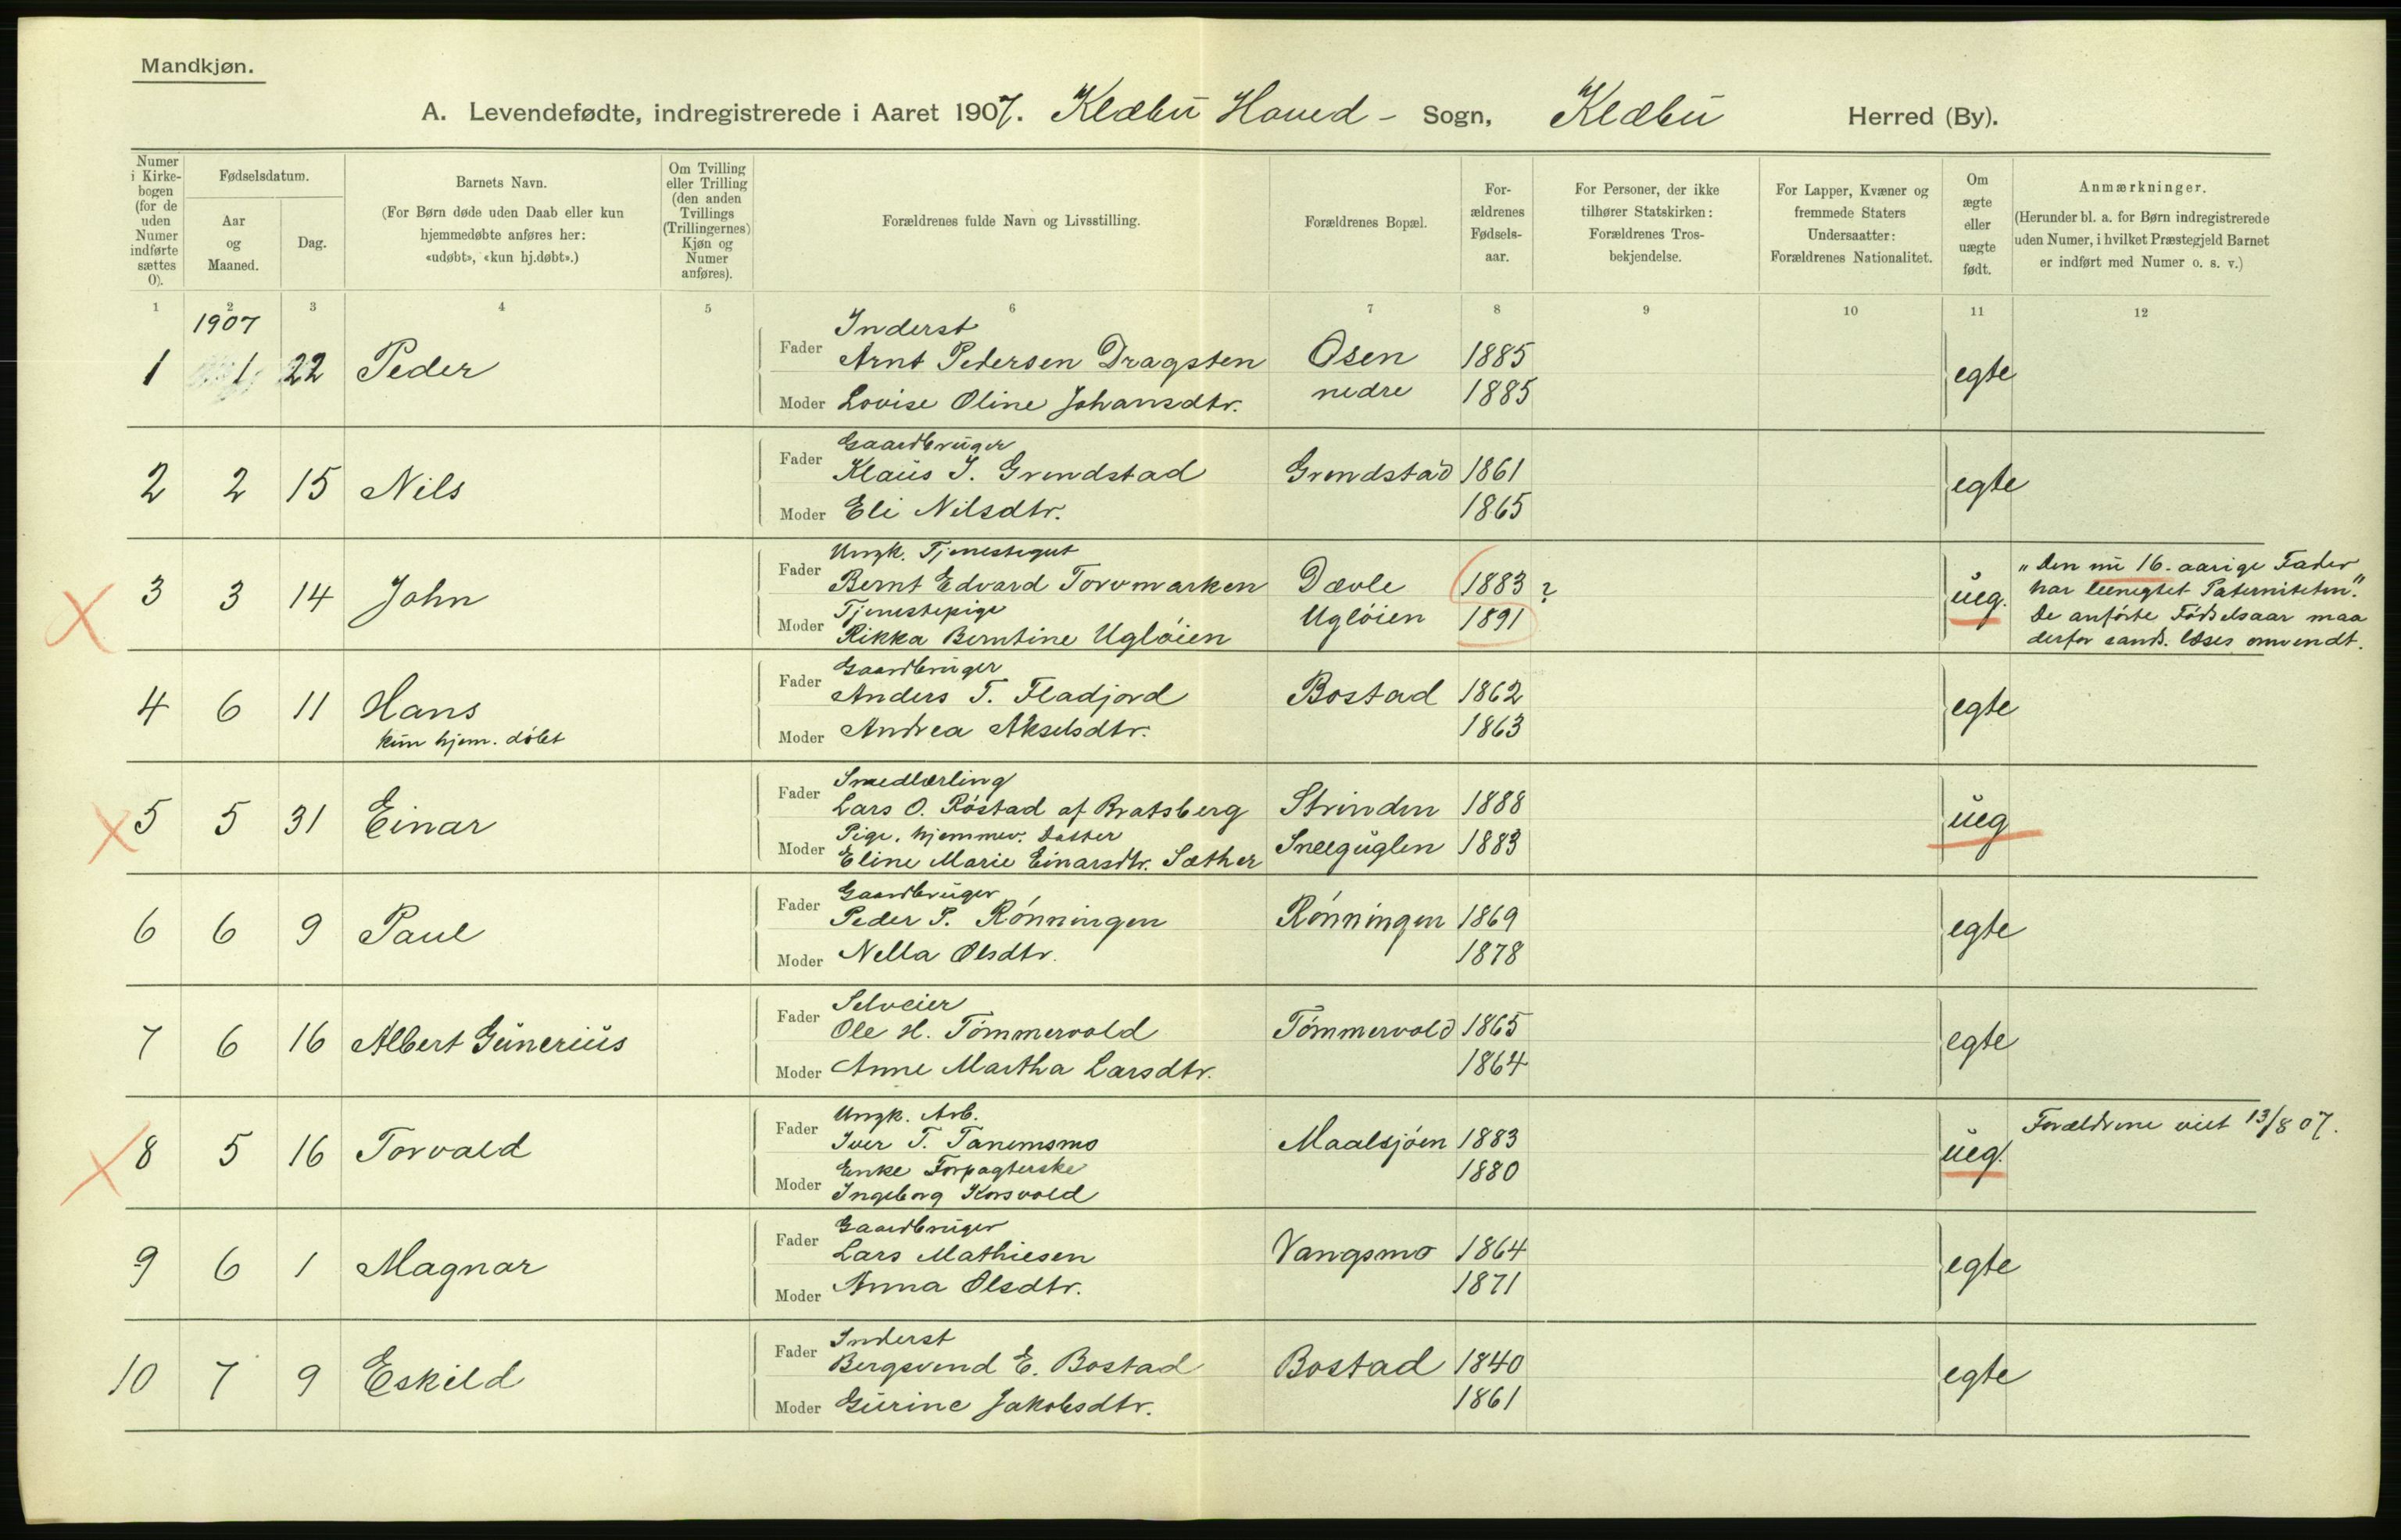 Mandkjøn.
A. Levendefødte, indregistrerede i Aaret 1907. Klæbu Hoved- Sogn, Klæbu Herred (By).
Numer i Kirkebogen (for de uden Numer indførte sættes 0).
Fødselsdatum.
Aar og Maaned.
Dag.
Barnets Navn.
(For Børn døde uden Daab eller kun hjemmedøbte anføres her: «udøbt», «kun hj.døbt».)
Om Tvilling eller Trilling (den anden Tvillings (Trillingernes) Kjøn og Numer anføres).
Forældrenes fulde Navn og Livsstilling.
Forældrenes Bopæl.
Forældrenes Fødselsaar.
For Personer, der ikke tilhører Statskirken: Forældrenes Trosbekjendelse.
For Lapper, Kvæner og fremmede Staters Undersaatter: Forældrenes Nationalitet.
Om ægte eller uægte født.
Anmærkninger.
(Herunder bl. a. for Børn indregistrerede uden Numer, i hvilket Præstegjeld Barnet er indført med Numer o. s. v.)
1 2 3 4 5 6 7 8 9 10 11 12
1907
1 1 22 Peder
Fader Inderst
Arnt Pedersen Dragsten Osen 1885
Moder Lovise Oline Johansdtr. nedre 1885
egte
2 2 15 Nils
Fader Gaardbruger
Klaus J. Grendstad Grendstad 1861
Moder Eli Nilsdtr. 1865
egte
3 3 14 John
Fader Ungk. Tjenestegut
Bernt Edvard Torvmarken Dævle 1883 ?
Moder Tjenestepige
Rikka Berntine Ugløien Ugløien 1891
ueg.
"Den nu 16-aarige Fader
har benegtet Paterniteten."
De anførte Fødselsaar maa
derfor sands. læses omvendt.
4 6 11 Hans
kun hjem. døbt
Fader Gaardbruger
Anders T. Fladjord Bostad 1862
Moder Andrea Akselsdtr. 1863
egte
5 5 31 Einar
Fader Smedlærling
Lars O. Røstad af Bratsberg Strinden 1888
Moder Pige, hjemmev. Datter
Eline Marie Einarsdtr. Sæther Sneeguglen 1883
ueg
6 6 9 Paul
Fader Gaardbruger
Peder P. Rønningen Rønningen 1869
Moder Nella Olsdtr. 1878
egte
7 6 16 Albert Gunerius
Fader Selveier
Ole H. Tømmervold Tømmervold 1865
Moder Anne Martha Larsdtr. 1864
egte
8 5 16 Torvald
Fader Ungk. Arb.
Iver T. Tanemsmo Maalsjøen 1883
Moder Enke Forpagterske 1880
Ingeborg Korsvold
ueg.
Forældrene viet 13/8 07.
9 6 1 Magnar
Fader Gaardbruger
Lars Mathiesen Vangsmo 1864
Moder Anna Olsdtr. 1871
egte
10 7 9 Eskild
Fader Inderst
Bergsvend E. Bostad Bostad 1840
Moder Gurine Jakobsdtr. 1861
egte